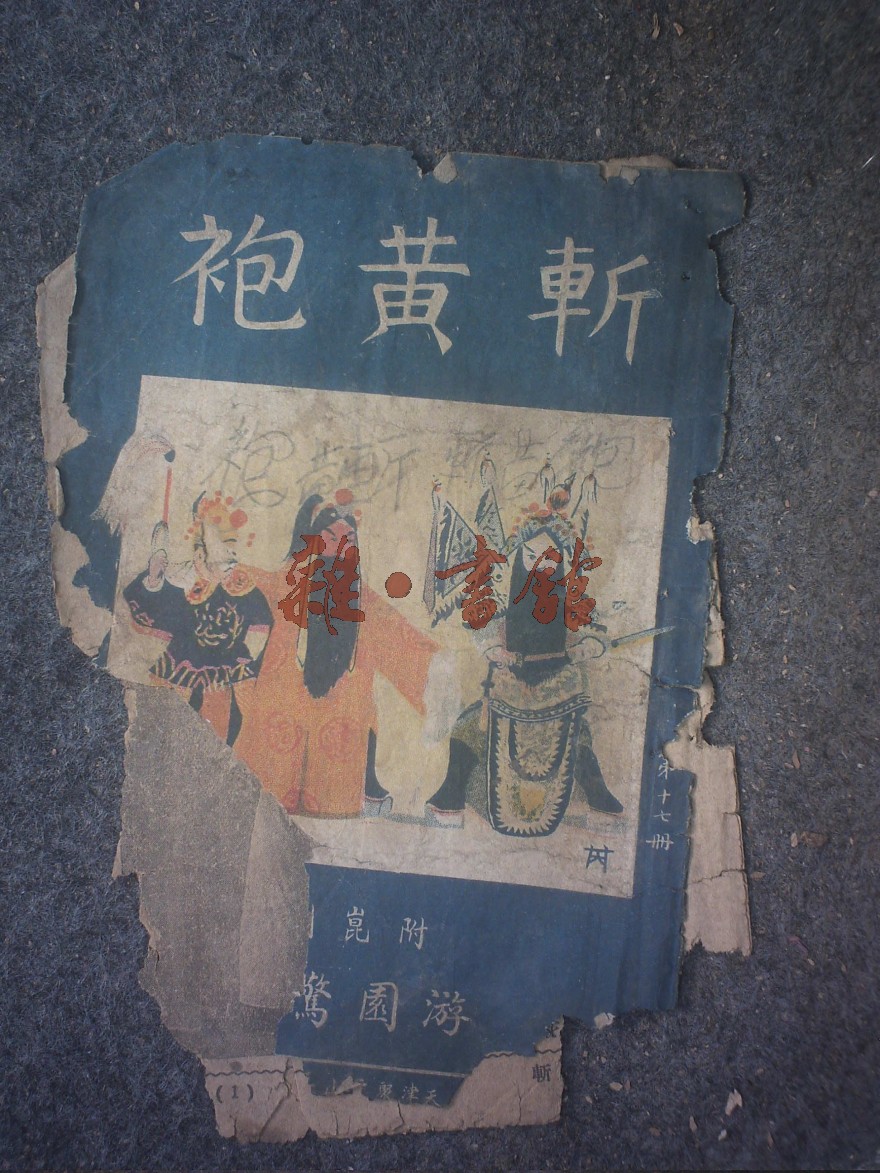 斬黄袍
袍黄斬 斬黄袍
雜·書館
第十七冊
芮
附崑
游園驚
天津
斬
(1)